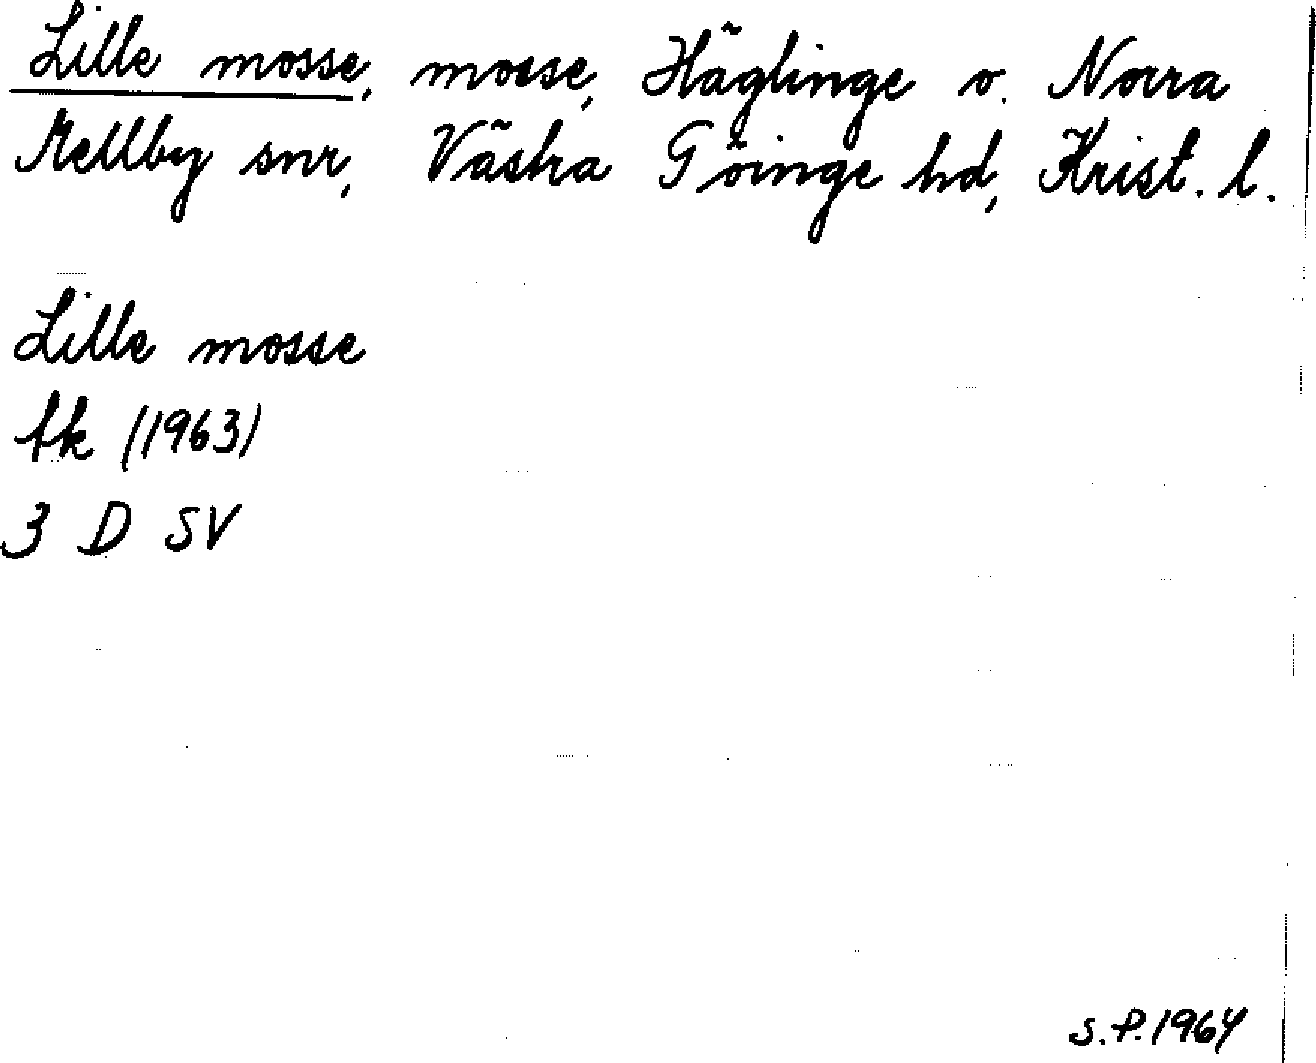 Lille mosse, mosse, Häglinge o. Norra
Mellby snr, Västra Göinge hd, Krist. l.
Lille mosse
fk (1963)
3 D SV
S.P. 1964